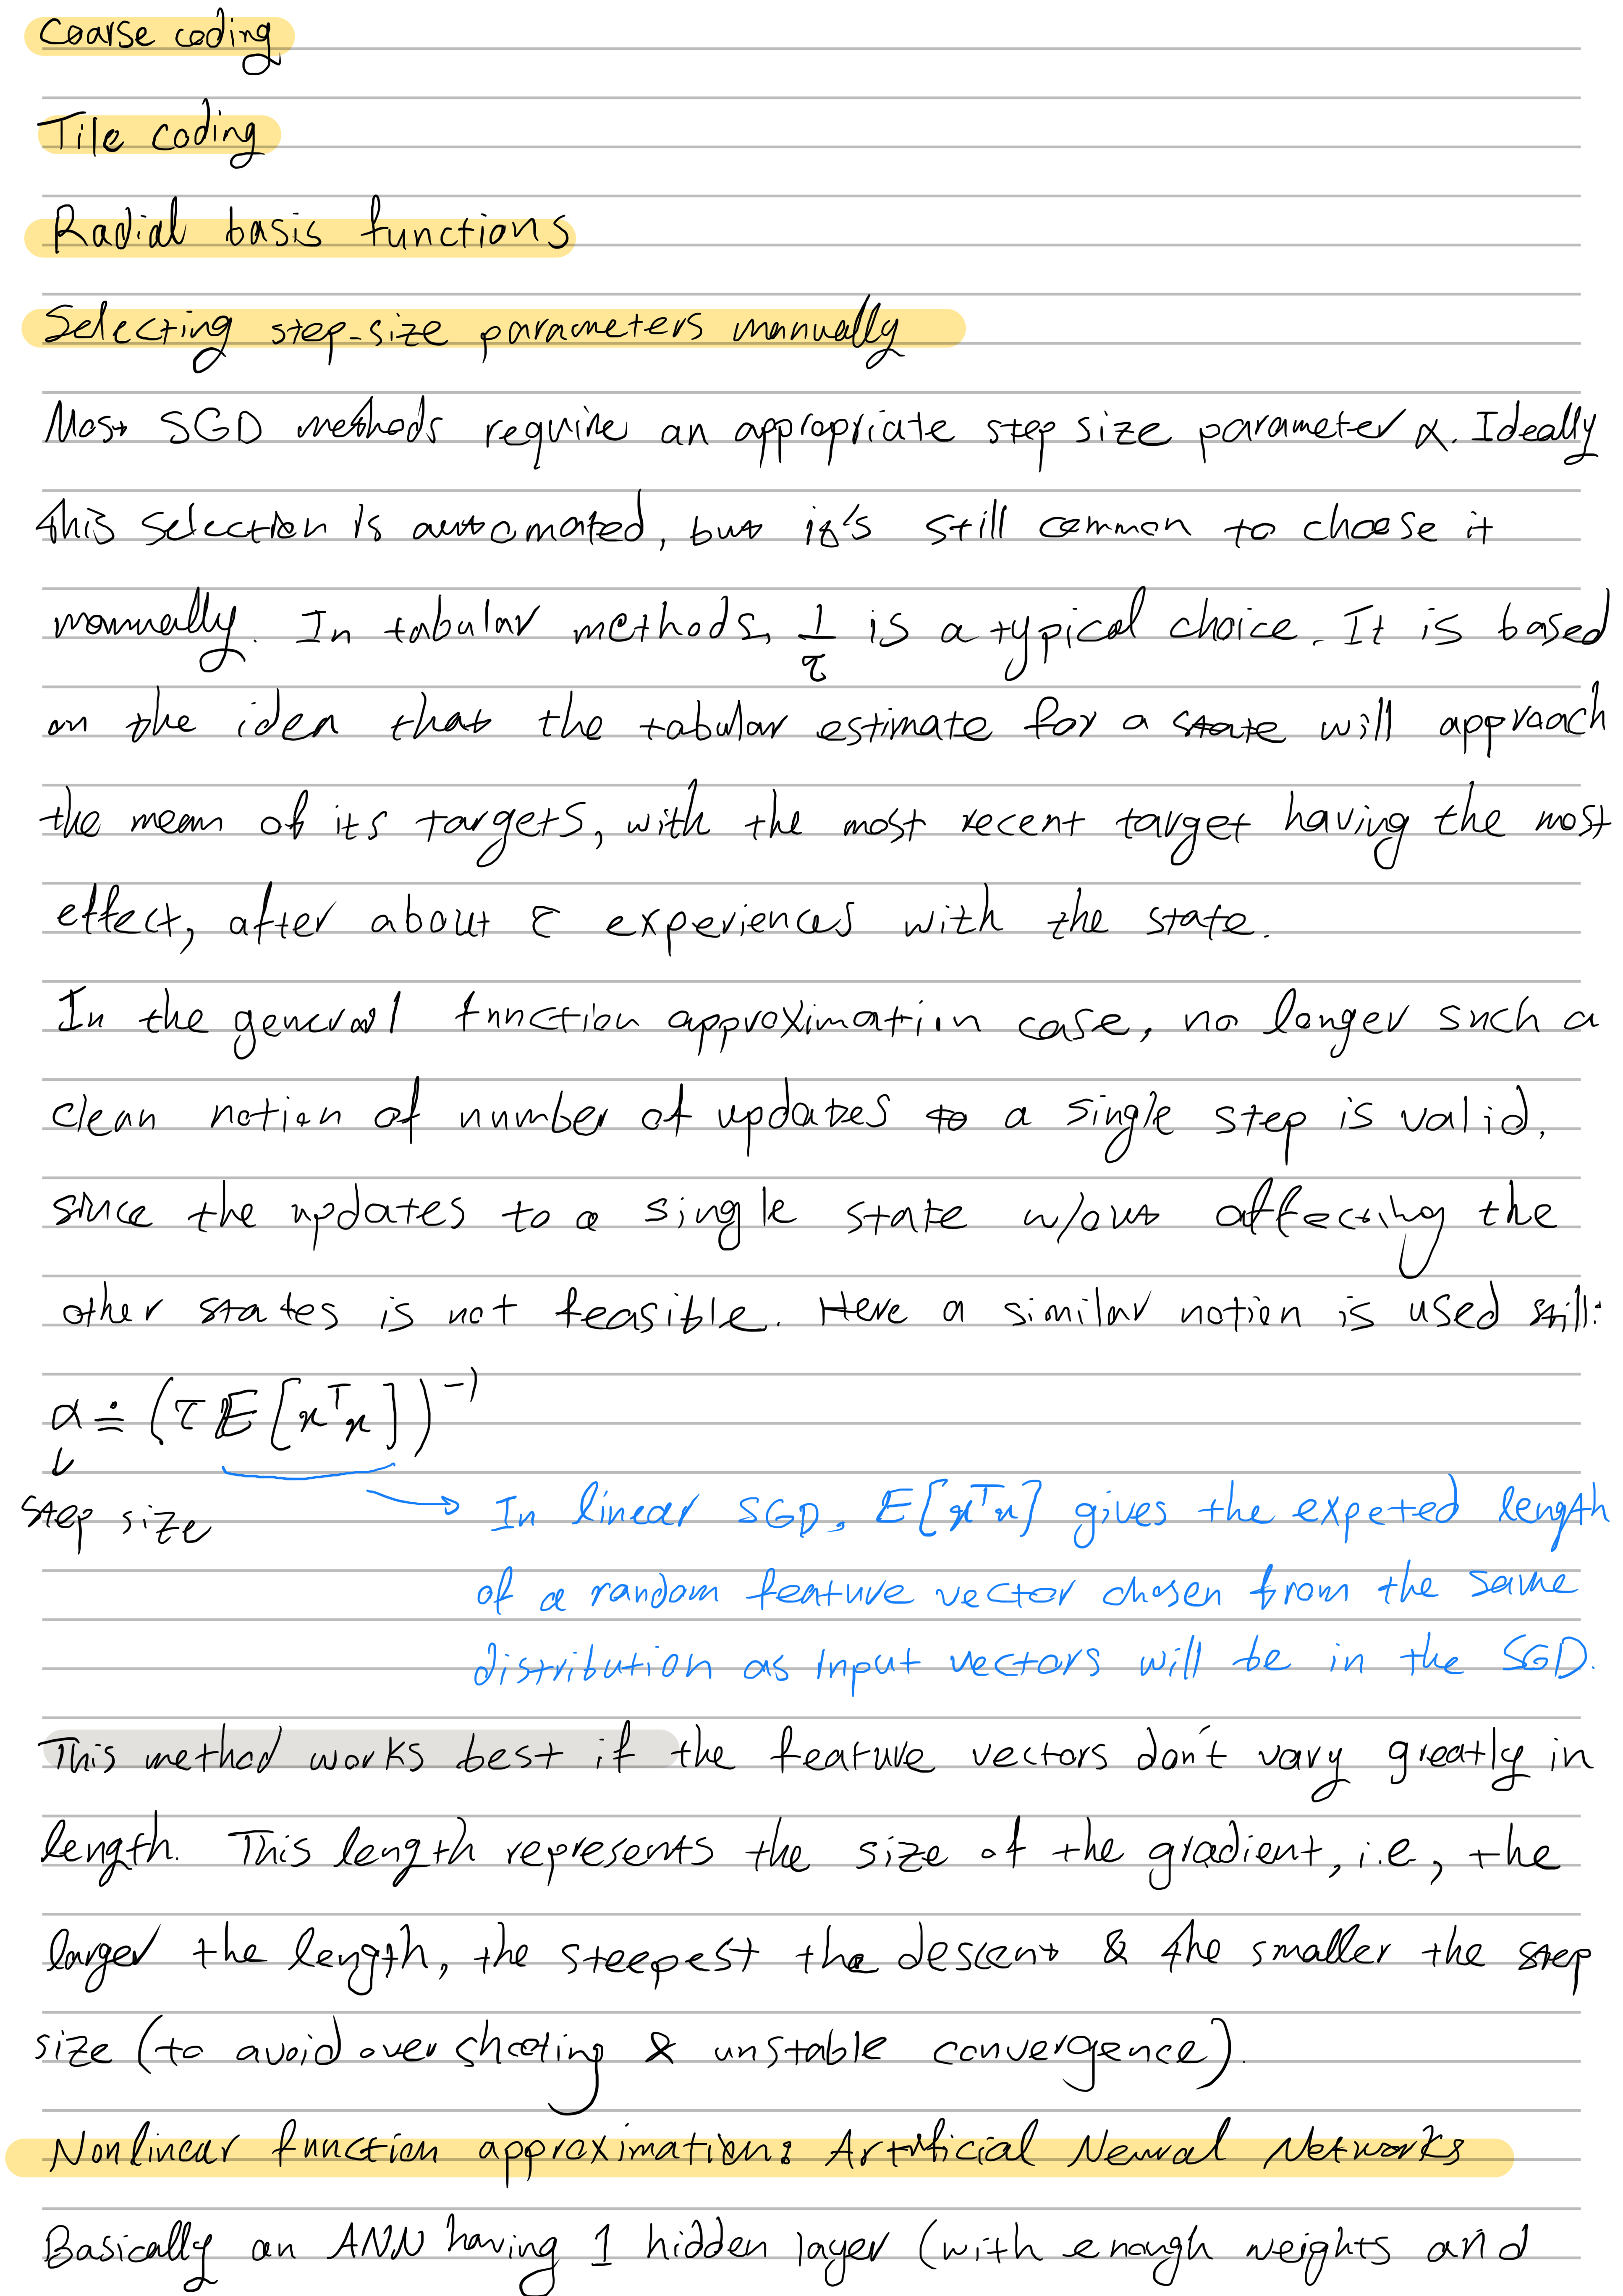 Coarse coding
Tile coding
Radial basis functions
Selecting step-size parameters manually
Most SGD methods require an appropriate step size parameter α. Ideally
this selection is automated, but it's still common to choose it
manually. In tabular methods, 1/τ is a typical choice. It is based
on the idea that the tabular estimate for a state will approach
the mean of its targets, with the most recent target having the most
effect, after about τ experiences with the state.
In the general function approximation case, no longer such a
clean notion of number of updates to a single step is valid,
since the updates to a single state w/out affecting the
other states is not feasible. Here a similar notion is used still:
α ≐ (τ E[xᵀx])⁻¹
↓
step size
→ In linear SGD, E[xᵀx] gives the expeted length
of a random feature vector chosen from the same
distribution as input vectors will be in the SGD.
This method works best if the feature vectors don't vary greatly in
length. This length represents the size of the gradient, i.e, the
larger the length, the steepest the descent & the smaller the step
size (to avoid over shooting & unstable convergence).
Nonlinear function approximation: Artificial Neural Networks
Basically an ANN having 1 hidden layer (with enough weights and